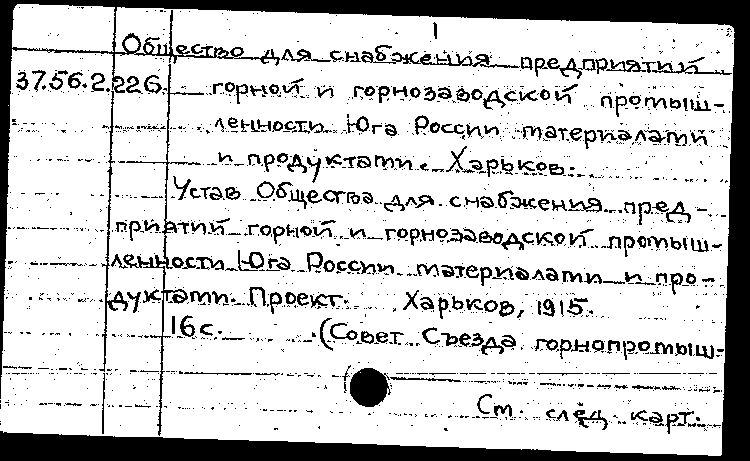 1
Общество для снабжения предприятий
37.56.2.226. горной и горнозаводской промыш-
ленности Юга России материалами
и продуктами. Харьков.
Устав Общества для снабжения пред-
приятий горной и горнозаводской промыш-
ленности Юга России материалами и про-
дуктами. Проект. Харьков, 1915.
16 с. (Совет Съезда горнопромыш-
См. след. карт.